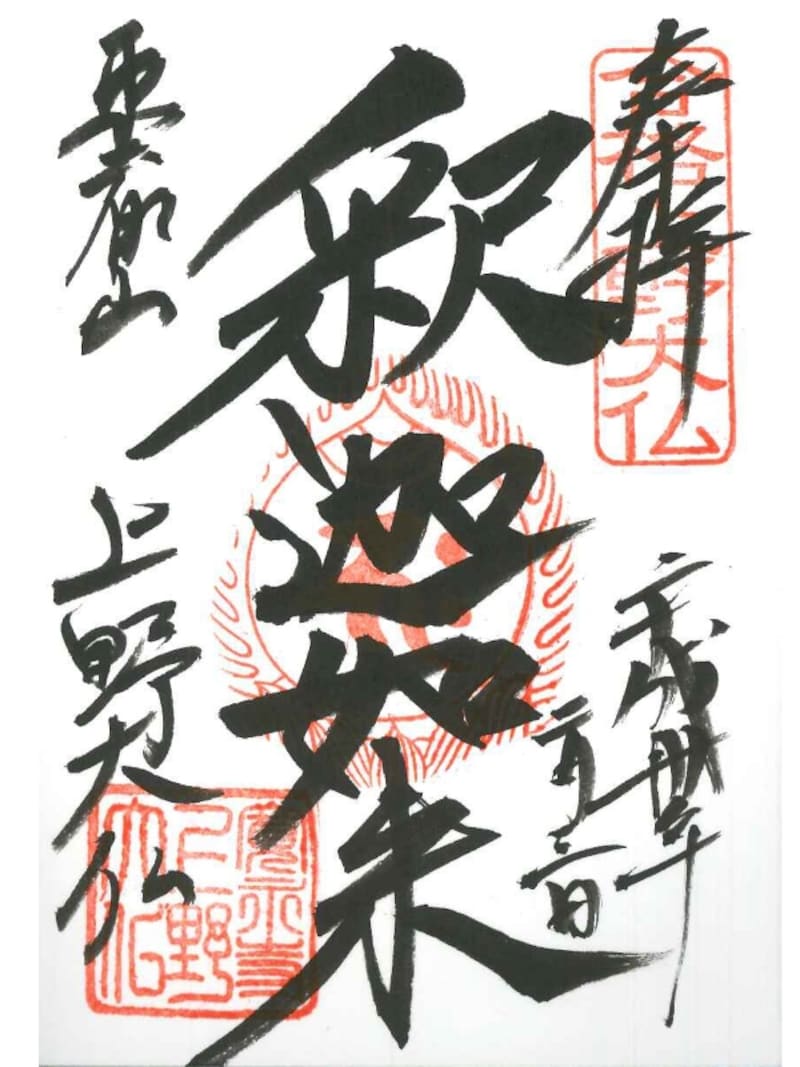 奉拝
合格上野大仏
平成卅年
二月三日
釈迦如来
東叡山
上野大仏
寛永寺
上野
大仏